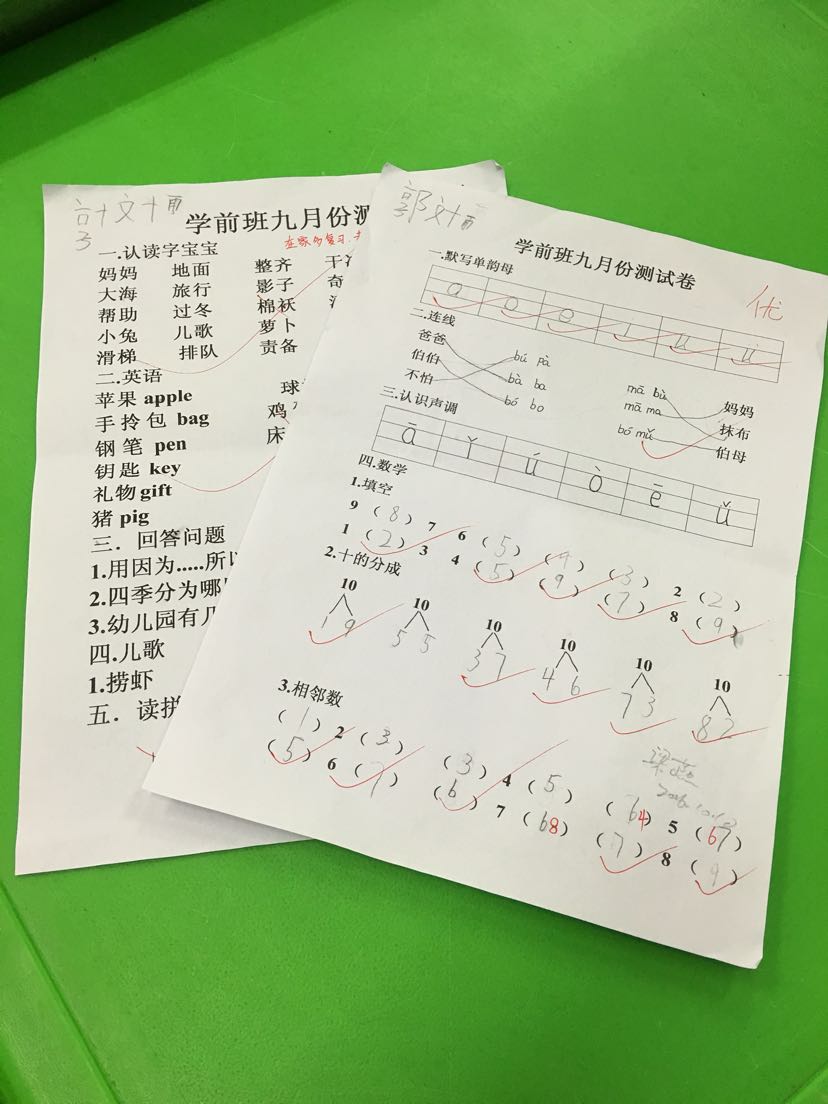 学前班九月份测
在家多复习
一.认读字宝宝
妈妈 地面 整齐 干净
大海 旅行 影子 奇
帮助 过冬 棉袄
小兔 儿歌 萝卜
滑梯 排队 责备
二.英语
苹果 apple 球
手拎包 bag 鸡
钢笔 pen 床
钥匙 key
礼物 gift
猪 pig
三．回答问题
1.用因为.....所以
2.四季分为哪
3.幼儿园有几
四.儿歌
1.捞虾
五．读拼
郭文雨
学前班九月份测试卷
优
一.默写单韵母
a o e i u ü
二.连线
爸爸 bú pà mā bù 妈妈
伯伯 bà ba mā ma 抹布
不怕 bó bo bó mǔ 伯母
三.认识声调
ā ǐ ú ò ē ǚ
四.数学
1.填空
9 (8) 7 6 (5) (4) (3) 2 (2)
1 (2) 3 4 (5) (9) (7) 8 (9)
2.十的分成
10 10 10 10 10 10
1 9 5 5 3 7 4 6 7 3 8 2
3.相邻数
(1) 2 (3) (3) 4 (5) (64) 5 (67)
(5) 6 (7) (6) 7 (68) (7) 8 (9)